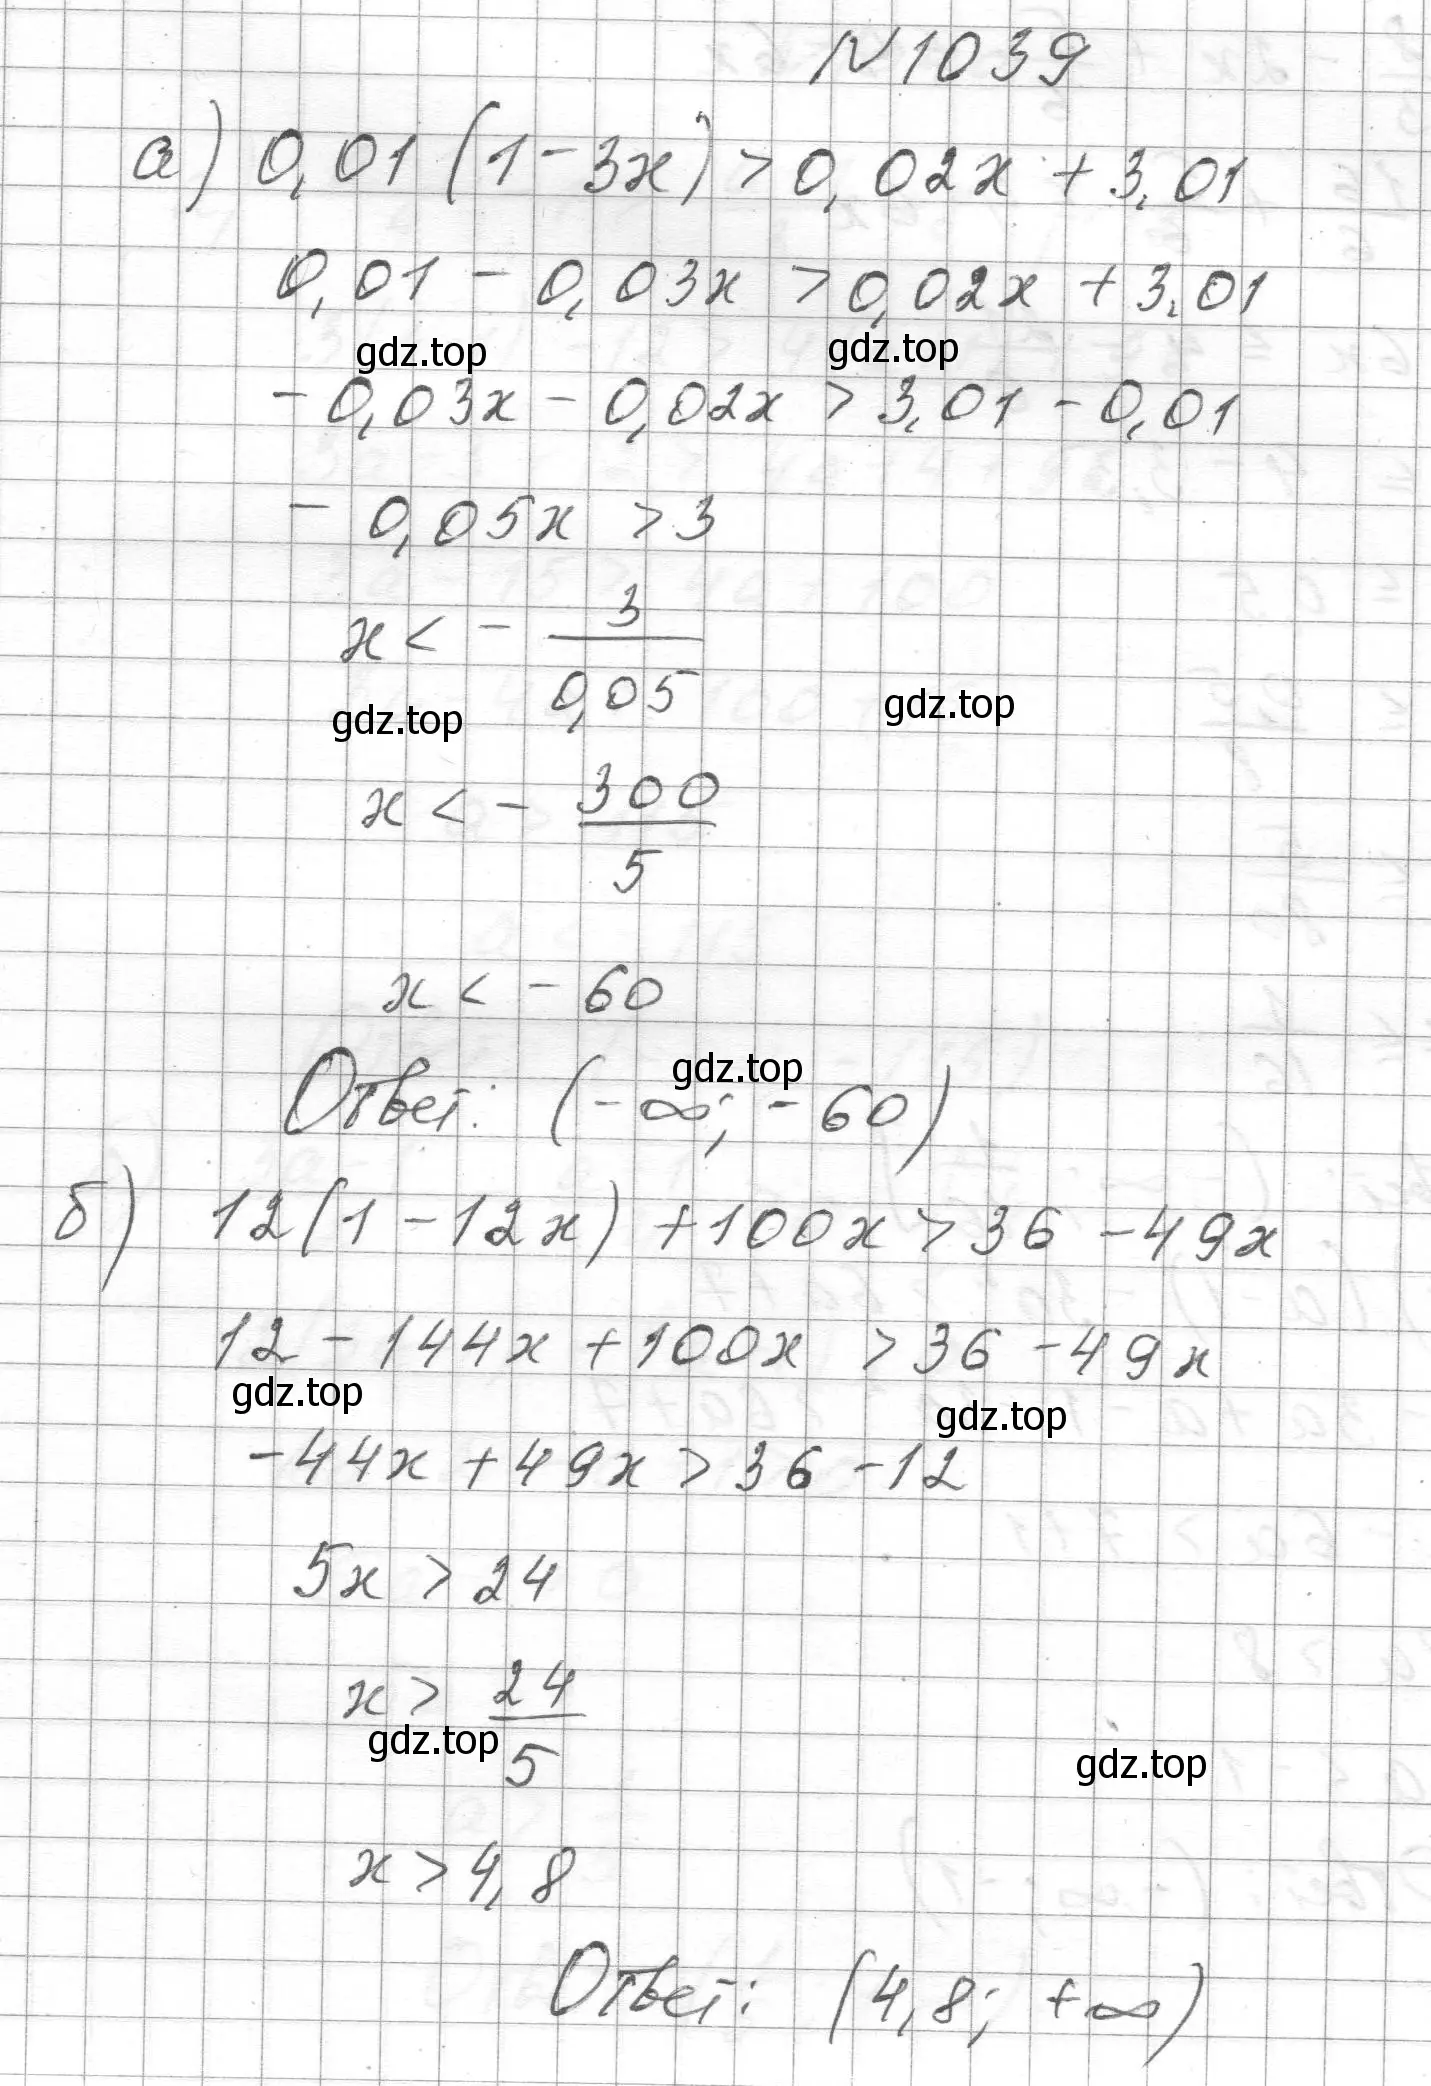 N1039
а) 0,01(1-3x) > 0,02x + 3,01
0,01 - 0,03x > 0,02x + 3,01
gdz.top gdz.top
- 0,03x - 0,02x > 3,01 - 0,01
- 0,05x > 3
x < - 3/0,05
gdz.top gdz.top
x < - 300/5
x < - 60
gdz.top
Ответ: (-∞; - 60)
б) 12(1-12x) + 100x > 36 - 49x
12 - 144x + 100x > 36 - 49x
gdz.top gdz.top
- 44x + 49x > 36 - 12
5x > 24
x > 24/5
gdz.top gdz.top
x > 4,8
Ответ: (4,8; +∞)